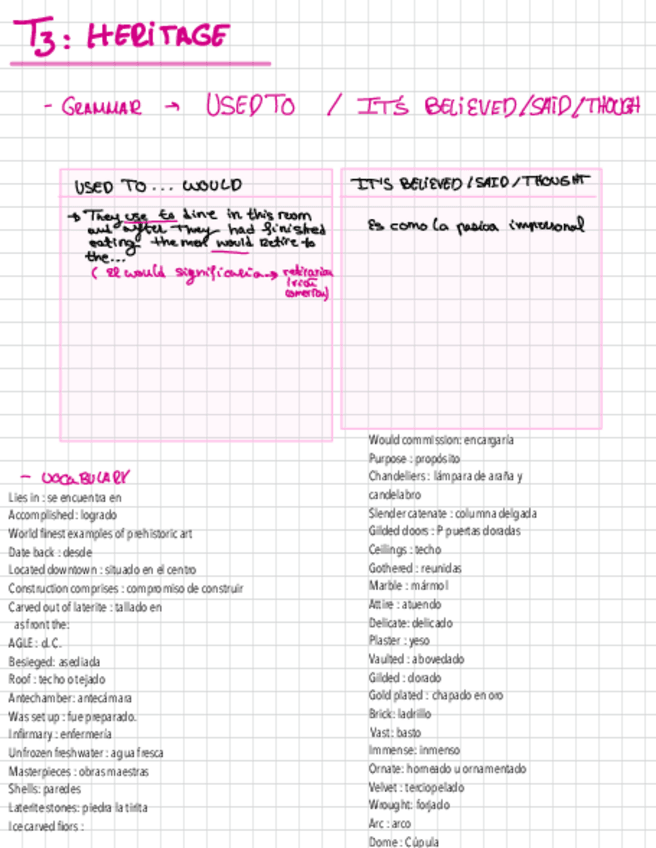 T3: HERITAGE
- GRAMMAR → USED TO / IT'S BELIEVED/SAID/THOUGH
USED TO ... WOULD
→ They use to dine in this room
and after they had finished
eating the men would retire to
the...
( El would significaria → retirarian
IT'S BELIEVED / SAID / THOUGHT
Es como la pasiva impersonal
- VOCABULARY
Lies in : se encuentra en
Accomplished : logrado
World finest examples of prehistoric art
Date back : desde
Located downtown : situado en el centro
Construction comprises : compromiso de construir
Carved out of laterite : tallado en
as front the:
AGLE : d.C.
Besieged: asediada
Roof : techo o tejado
Antechamber: antecámara
Was set up : fue preparado.
Infirmary : enfermería
Unfrozen freshwater : agua fresca
Masterpieces : obras maestras
Shells: paredes
Laterite stones: piedra la tirita
Ice carved fiors :
Would commission: encargaría
Purpose : propósito
Chandeliers : lámpara de araña y
candelabro
Slender catenate : columna delgada
Gilded doors : P puertas doradas
Ceilings : techo
Gothered : reunidas
Marble : mármol
Attire : atuendo
Delicate: delicado
Plaster : yeso
Vaulted : abovedado
Gilded : dorado
Gold plated : chapado en oro
Brick: ladrillo
Vast: basto
Immense: inmenso
Ornate: horneado u ornamentado
Velvet : terciopelado
Wrought: forjado
Arc : arco
Dome : Cúpula